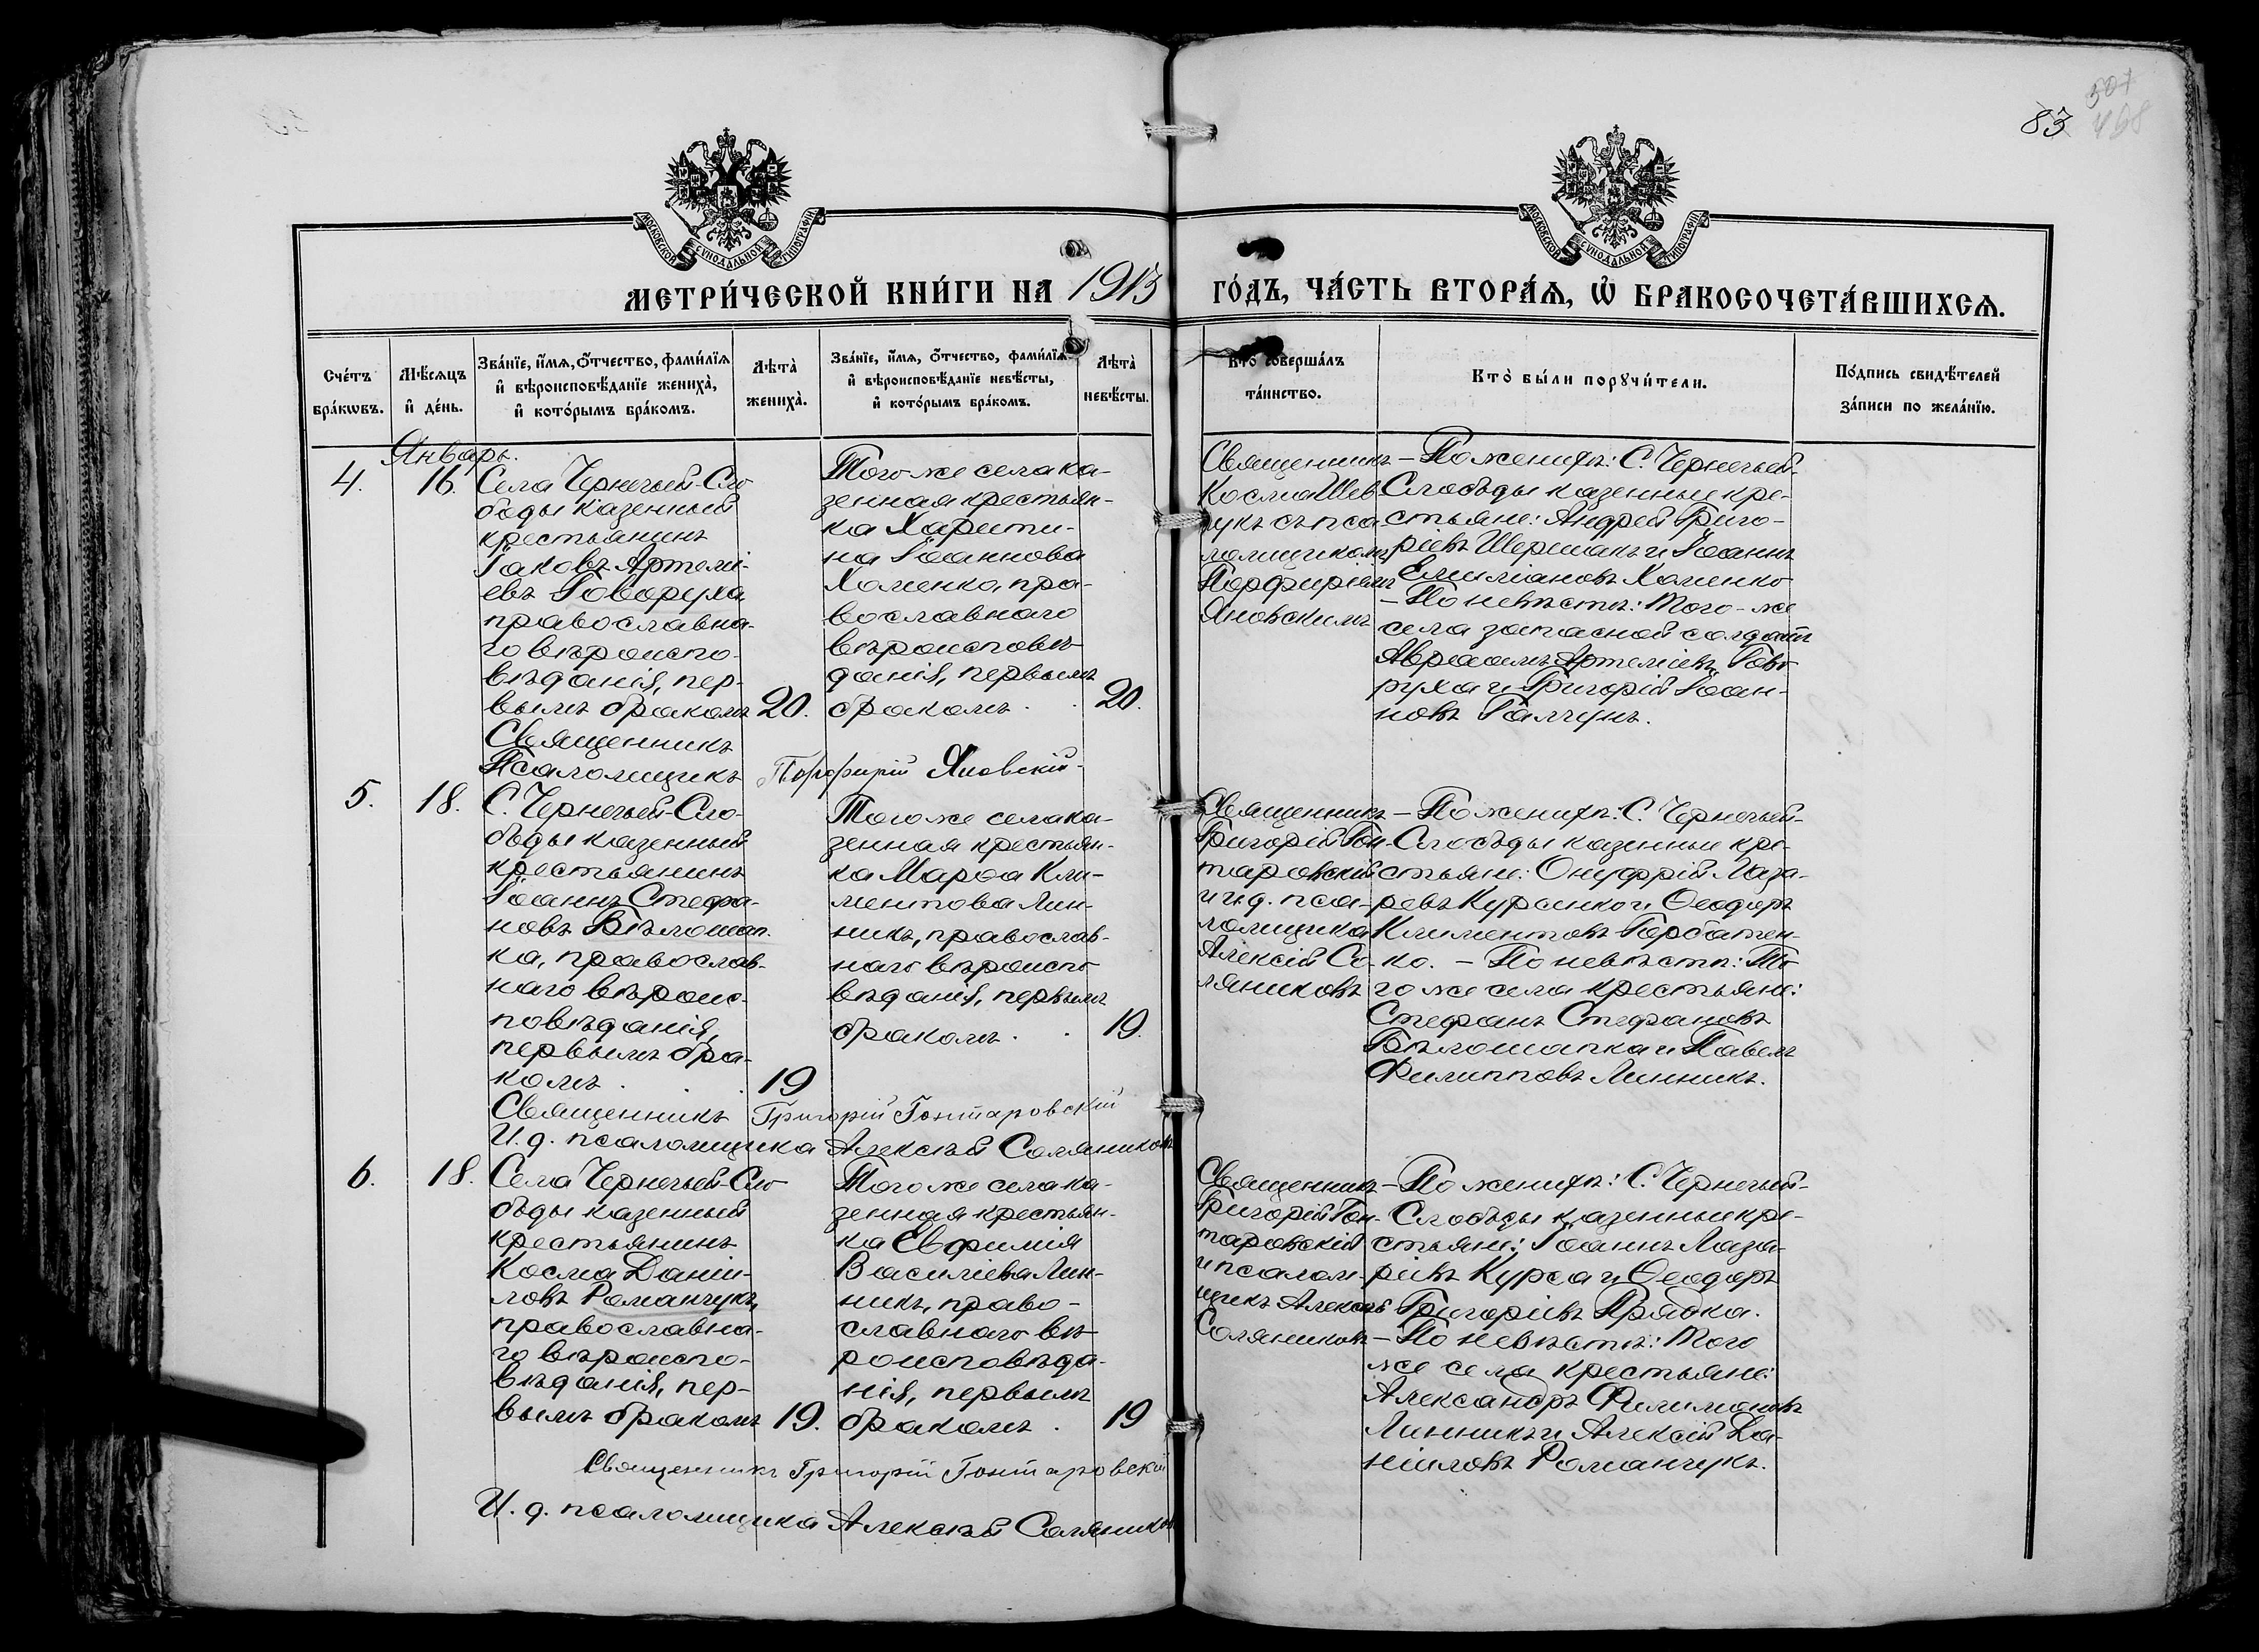 83
501
468
МОСКОВСКОЙ СѴНОДАЛЬНОЙ ТИПОГРАФІИ
МОСКОВСКОЙ СѴНОДАЛЬНОЙ ТИПОГРАФІИ
МЕТРИ́ЧЕСКОЙ КНИ́ГИ НА 1913 ГО́ДЪ, ЧА́СТЬ ВТОРА́Ѧ, Ѽ БРАКОСОЧЕТА́ВШИХСѦ.
Сче́тъ
бра́кѡвъ.
Мѣ́сѧцъ
и҆ де́нь.
Зва́нїе, и҆́мѧ, ѻ҆́тчество, фами́лїѧ
и҆ вѣроисповѣ́данїе жениха̀,
и҆ кото́рымъ бра́комъ.
Лѣта̀
жениха̀.
Зва́нїе, и҆́мѧ, ѻ҆́тчество, фами́лїѧ
и҆ вѣроисповѣ́данїе невѣ́сты,
и҆ кото́рымъ бра́комъ.
Лѣта̀
невѣ́сты.
Кто̀ соверша́лъ
та́инство.
Кто̀ бы́ли порꙋчи́тели.
По́дпись свидѣ́телей
за́писи по жела́нїю.
Январь.
4.
16.
Села Чернечьей-Сло-
боды казенный
крестьянинъ
Іаковъ Артемі-
евъ Говоруха
православна-
го вѣроиспо-
вѣданія, пер-
вымъ бракомъ
20.
Того же села ка-
зенная крестьян-
ка Харити-
на Іоаннова
Хоменко, пра-
вославнаго
вѣроисповѣ-
данія, первымъ
бракомъ.
20.
Священникъ
Косма Шев
чукъ съ пса-
ломщикомъ
Порфиріемъ
Яновскимъ
— По женихѣ: С. Чернечьей-
Слободы казенные кре-
стьяне: Андрей Григо-
ріевъ Шеремакъ и Іоаннъ
Емиліановъ Хоменко
— По невѣстѣ: того-же
села запасной солдатъ
Авраамъ Артеміевъ Гово
руха и Григорій Іоан-
новъ Галчунъ.
Священникъ
Псаломщикъ Порфирій Яновскій
5.
18.
С. Чернечьей-Сло-
боды казенный
крестьянинъ
Іоаннъ Стефа-
новъ Бѣлошап-
ка, православ-
наго вѣроис-
повѣданія,
первымъ бра-
комъ
19
Того же села ка-
зенная крестьян-
ка Марѳа Кли-
ментова Лин-
никъ, православ-
наго вѣроиспо
вѣданія, первымъ
бракомъ.
19.
Священникъ
Григорій Гон-
таровскій
и и. д. пса-
ломщика
Алексій Со-
ляниковъ
— По женихѣ: С. Чернечьей-
Слободы казенные кре-
стьяне: Онуфрій Лаза-
ревъ Курсинко и Ѳеодоръ
Климентовъ Горбатен-
ко. — По невѣстѣ: То
го же села крестьяне:
Стефанъ Стефановъ
Бѣлошапка и Павелъ
Филипповъ Линникъ.
Священникъ Григорій Гонтаровскій
И. д. псаломщика Алексѣй Соляниковъ
6.
18.
Села Чернечьей-Сло
боды казенный
крестьянинъ
Косма Даніи-
ловъ Романчукъ,
православна-
го вѣроиспо-
вѣданія, пер-
вымъ бракомъ
19.
Того же села ка-
зенная крестьян-
ка Евфимія
Василіева Лин-
никъ, право-
славнаго вѣ-
роисповѣда-
нія, первымъ
бракомъ.
19
Священникъ
Григорій Гон-
таровскій
и псалом-
щикъ Алексѣй
Соляниковъ
— По женихѣ: С. Чернечьей-
Слободы казенные кре-
стьяне: Іоаннъ Лаза-
ріевъ Курса и Ѳеодоръ
Григоріевъ Прядка.
— По невѣстѣ: того
же села крестьяне:
Александръ Филимоновъ
Линникъ и Алексій Да-
ніиловъ Романчукъ.
Священникъ Григорій Гонтаровскій
И. д. псаломщика Алексѣй Соляниковъ